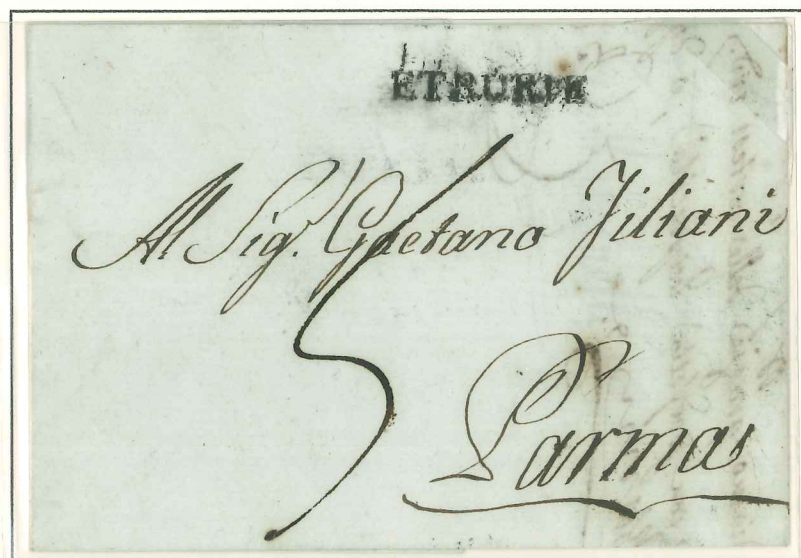 ETRURIE
Al Sig.r Gaetano Ziliani
5
Parma